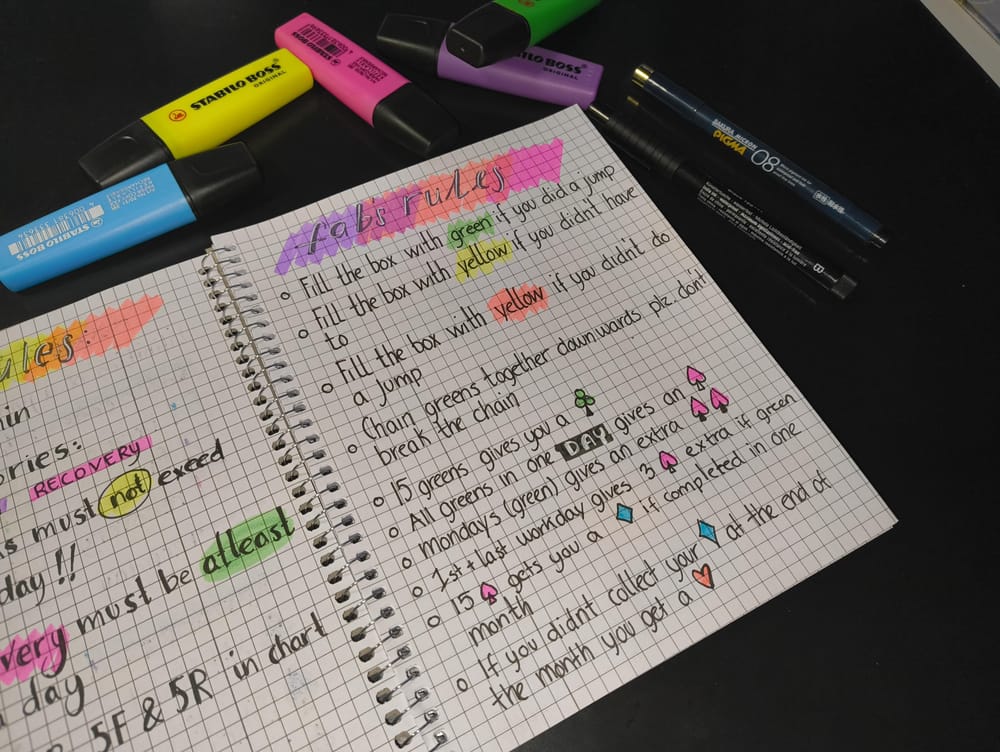 STABILO BOSS
ORIGINAL
STABILO BOSS
STABILO BOSS
BOSS
ORIGINAL
SAKURA MICRON
PIGMA
08
8
ules:
in
ries:
RECOVERY
s must not exceed
day !!
very must be atleast
day
5F & 5R in chart
fab's rules
o Fill the box with green if you did a jump
o Fill the box with yellow if you didn't have
to
o Fill the box with yellow if you didn't do
a jump
o Chain greens together downwards plz. don't
break the chain
o 15 greens gives you a ♣
o All greens in one DAY gives an ♠
o mondays (green) gives an extra ♠♠
o 1st + last workday gives 3 ♠ extra if green
o 15 ♠ gets you a ♦ if completed in one
month
o If you didnt collect your ♦ at the end of
the month you get a ♥